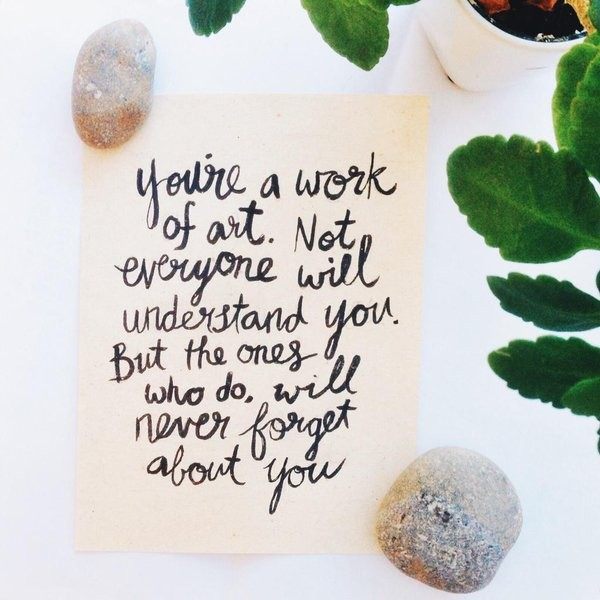 you're a work
of art. Not
everyone will
understand you.
But the ones
who do, will
never forget
about you